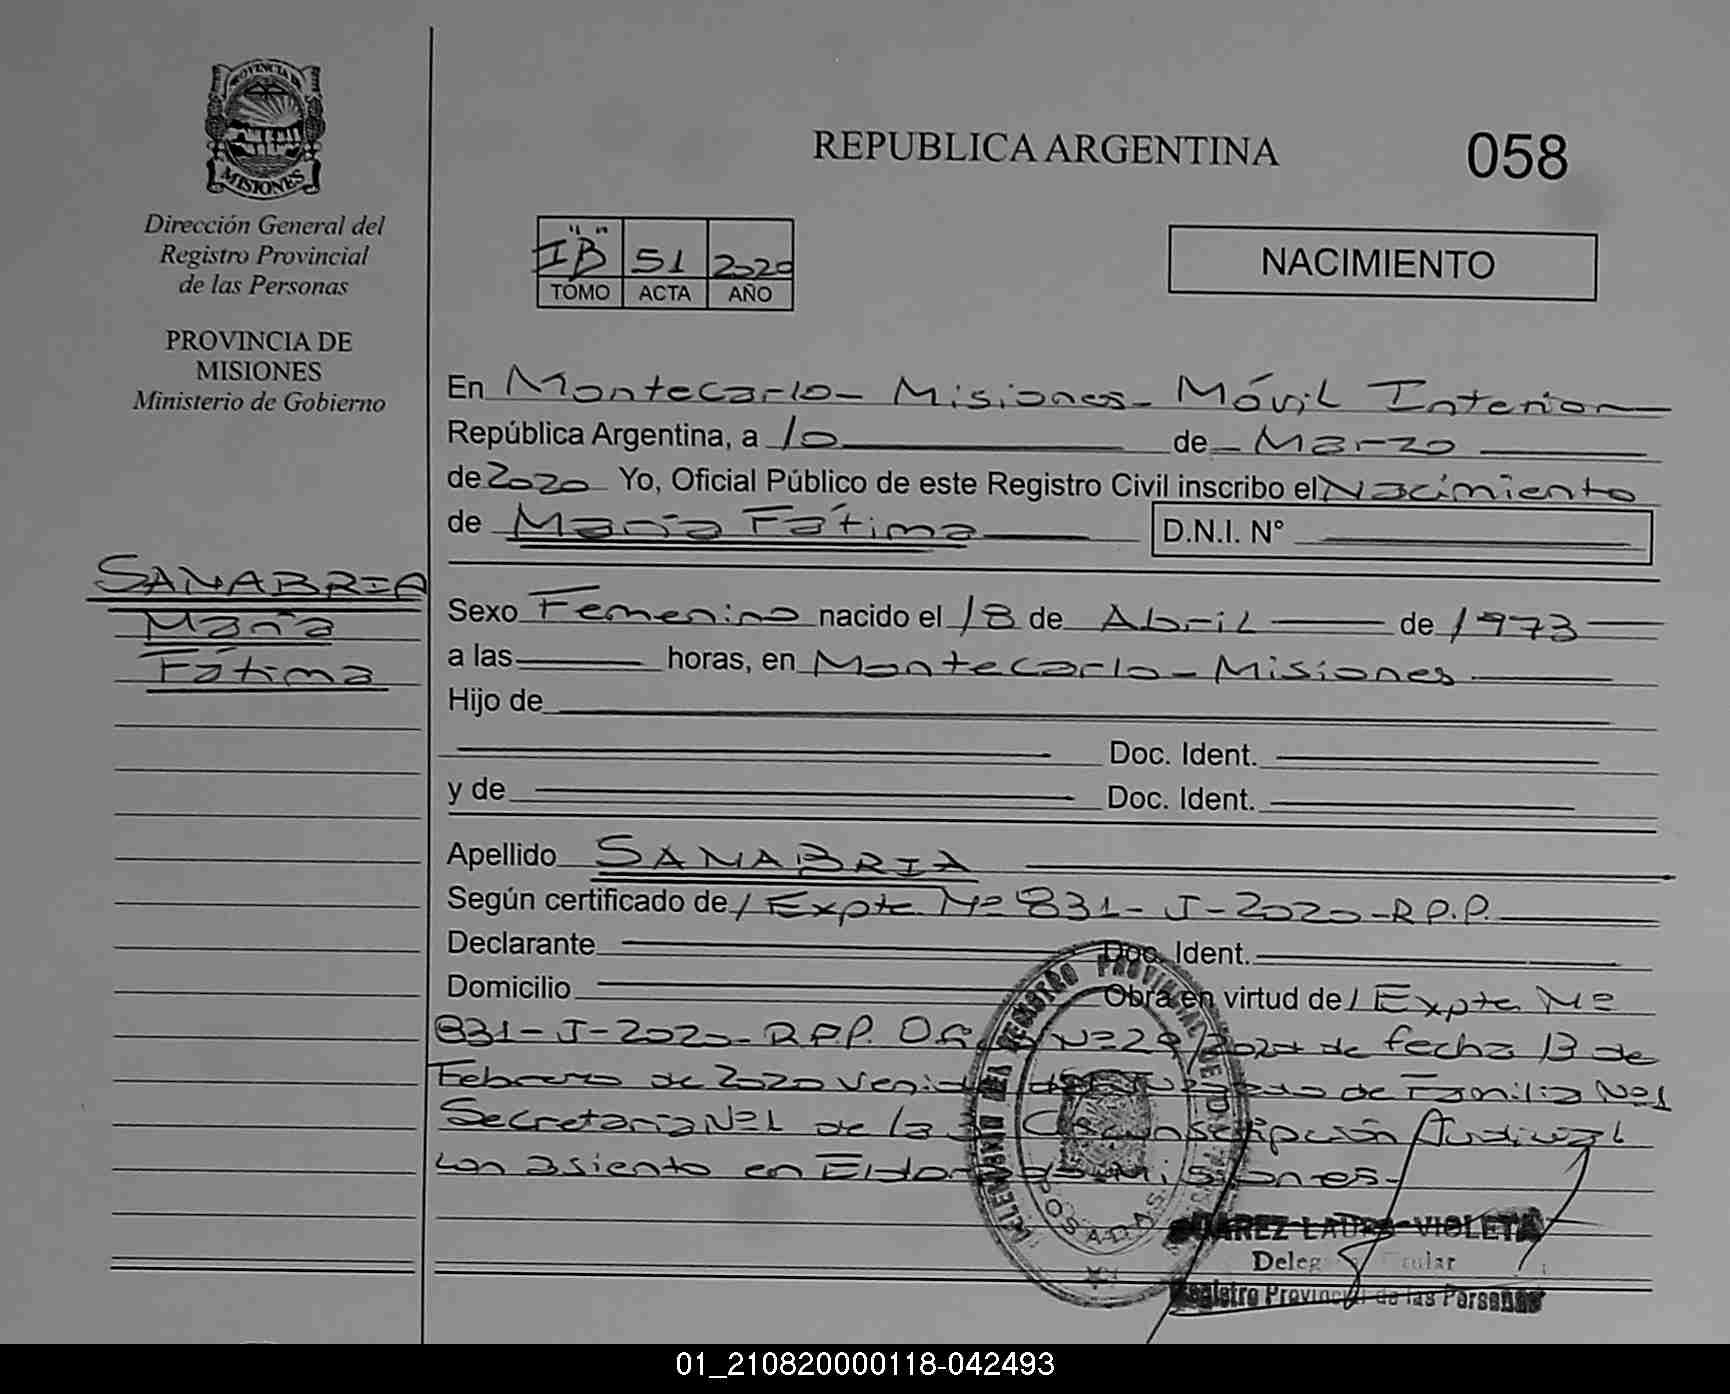 PROVINCIA DE
MISIONES
Dirección General del
Registro Provincial
de las Personas
PROVINCIA DE
MISIONES
Ministerio de Gobierno
SANABRIA
María
Fátima
REPUBLICA ARGENTINA
058
I"B" 51 2020
TOMO ACTA AÑO
NACIMIENTO
En Montecarlo - Misiones - Móvil Interior
República Argentina, a 10 de Marzo
de 2020 Yo, Oficial Público de este Registro Civil inscribo el Nacimiento
de María Fátima D.N.I. N°
Sexo Femenino nacido el 18 de Abril de 1973
a las horas, en Montecarlo - Misiones
Hijo de
Doc. Ident.
y de Doc. Ident.
Apellido SANABRIA
Según certificado de / Expte. Nº 831 - J - 2020 - R.P.P.
Declarante Doc. Ident.
Domicilio Obra en virtud de / Expte Nº
831 - J - 2020 - R.P.P. Nº 29/2020 de fecha 13 de
Febrero de 2020 de Familia Nº1
Secretaria Nº1 de la Circunscripción Judicial
con asiento en Eldorado - Misiones.
REGISTRO PROVINCIAL DE LAS
POSADAS
SUAREZ LAURA VIOLETA
Titular
Registro Provincial de las Personas
01_210820000118-042493